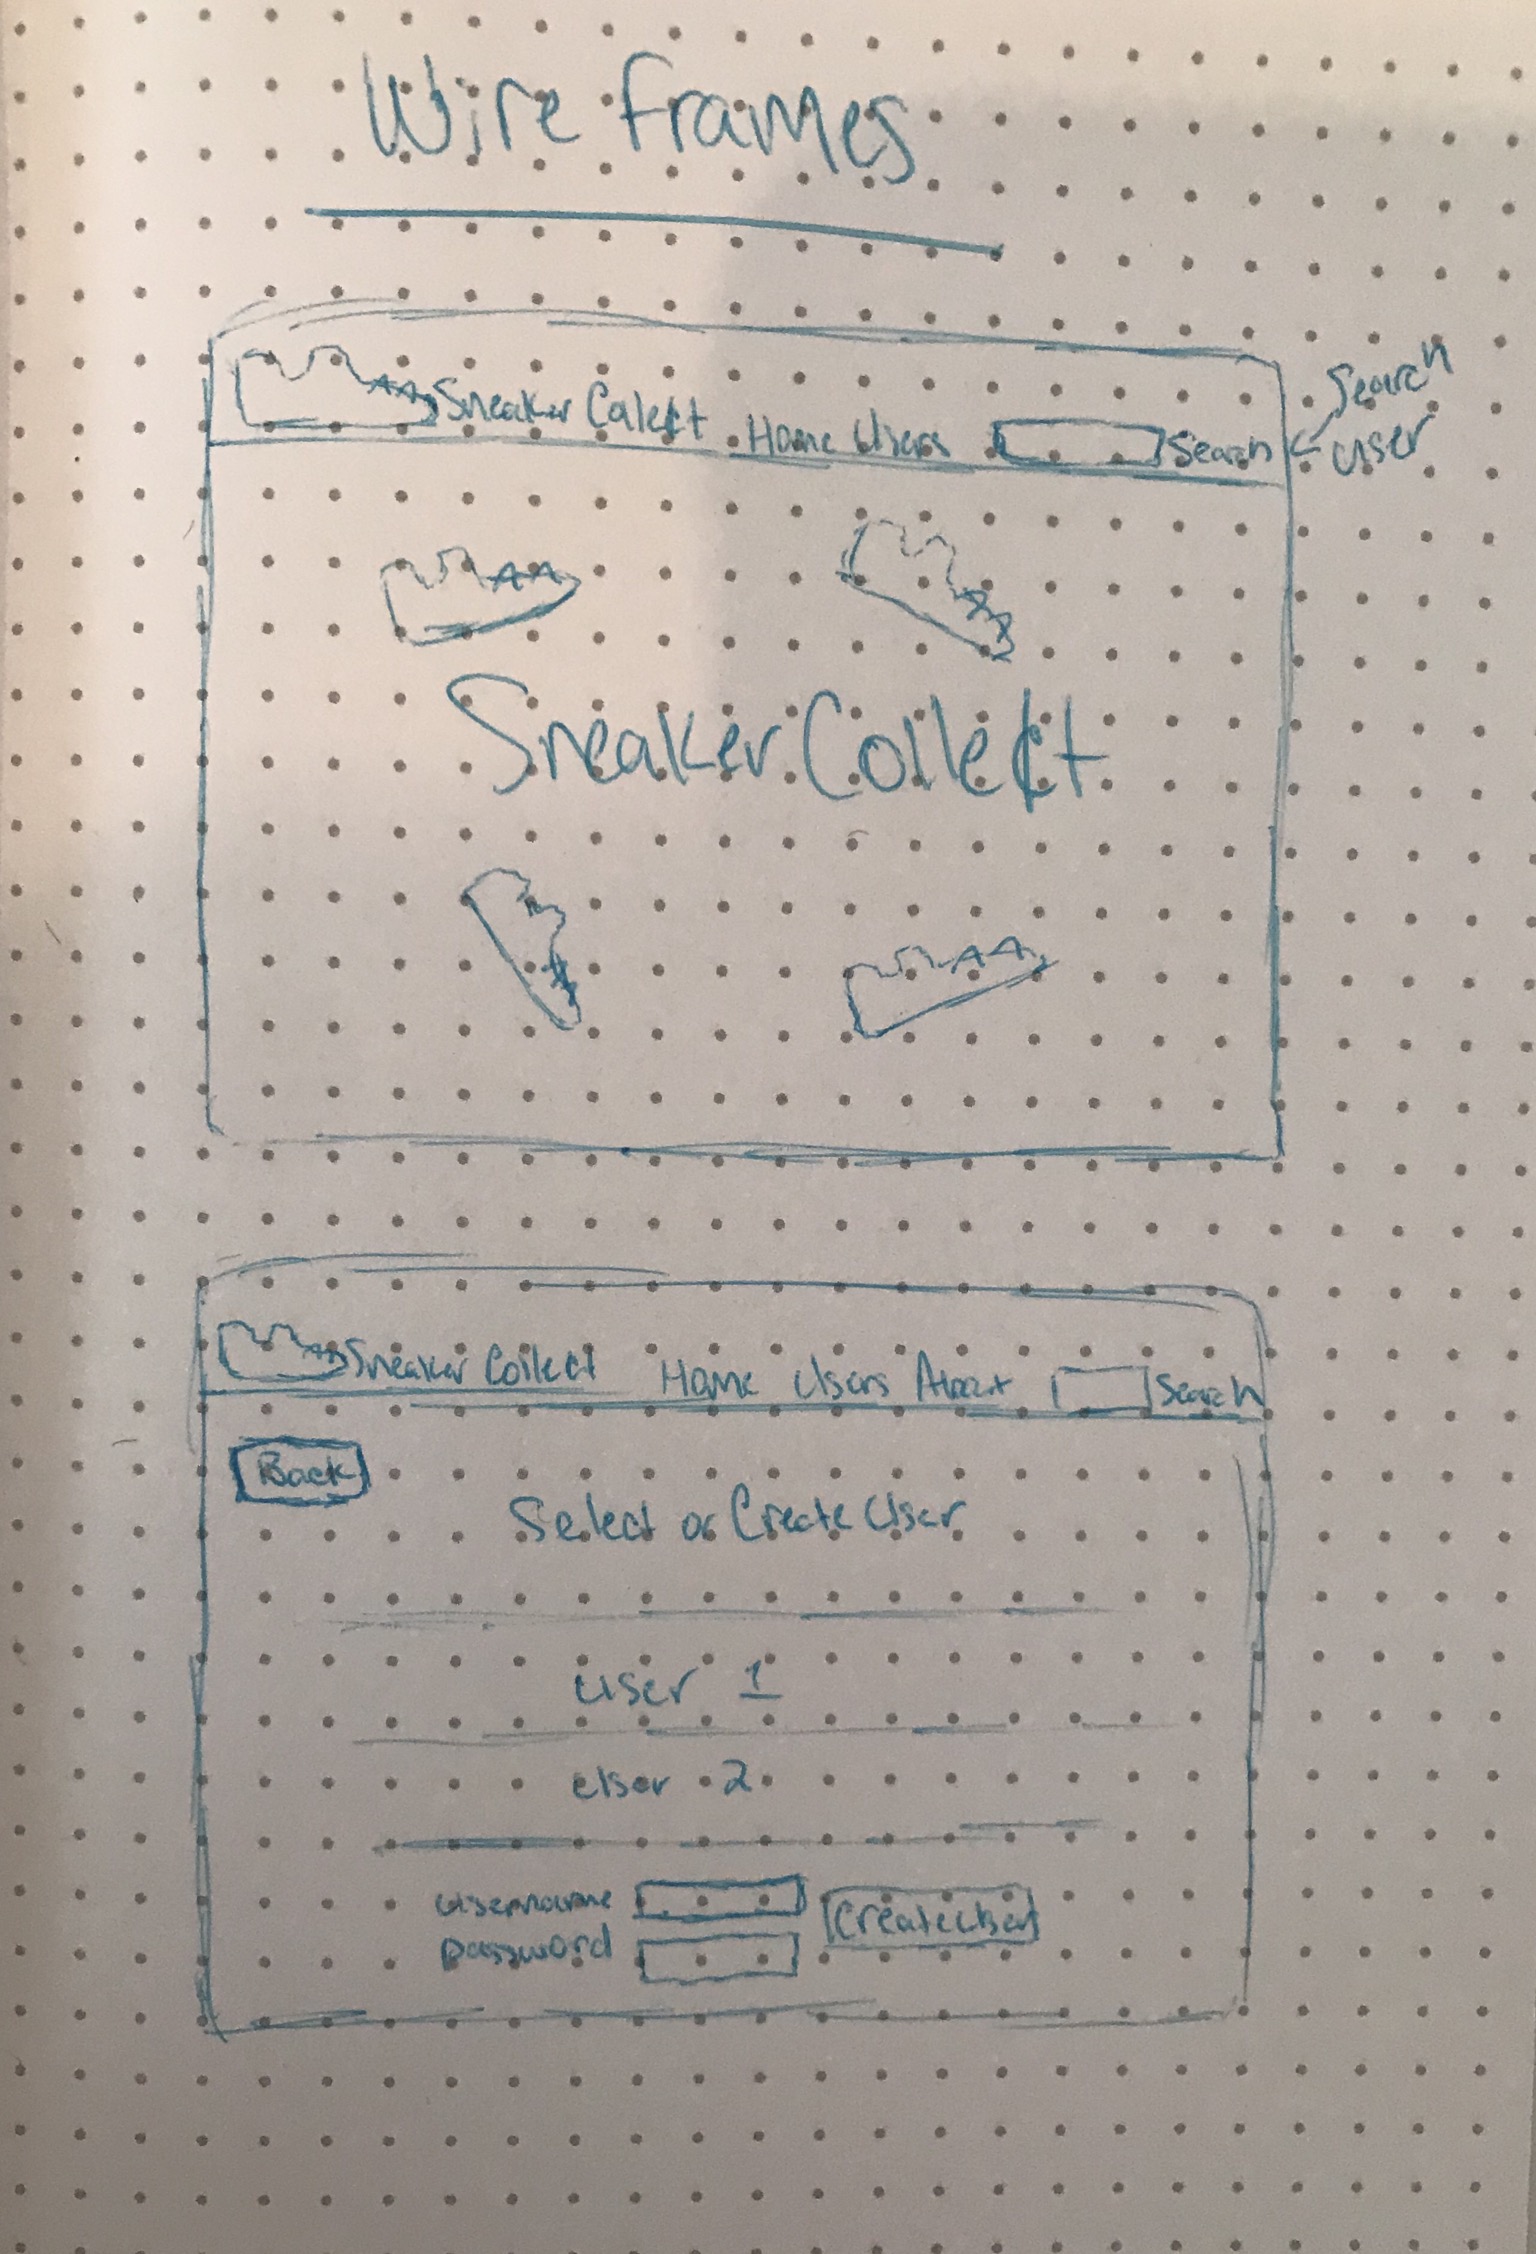 Wire Frames
Sneaker Calect Home Users Search
Search
user
Sneaker Collect
Sneaker Collect Home Users About Search
Back
Select or Create User
User 1
User 2
Username
Password
Create User